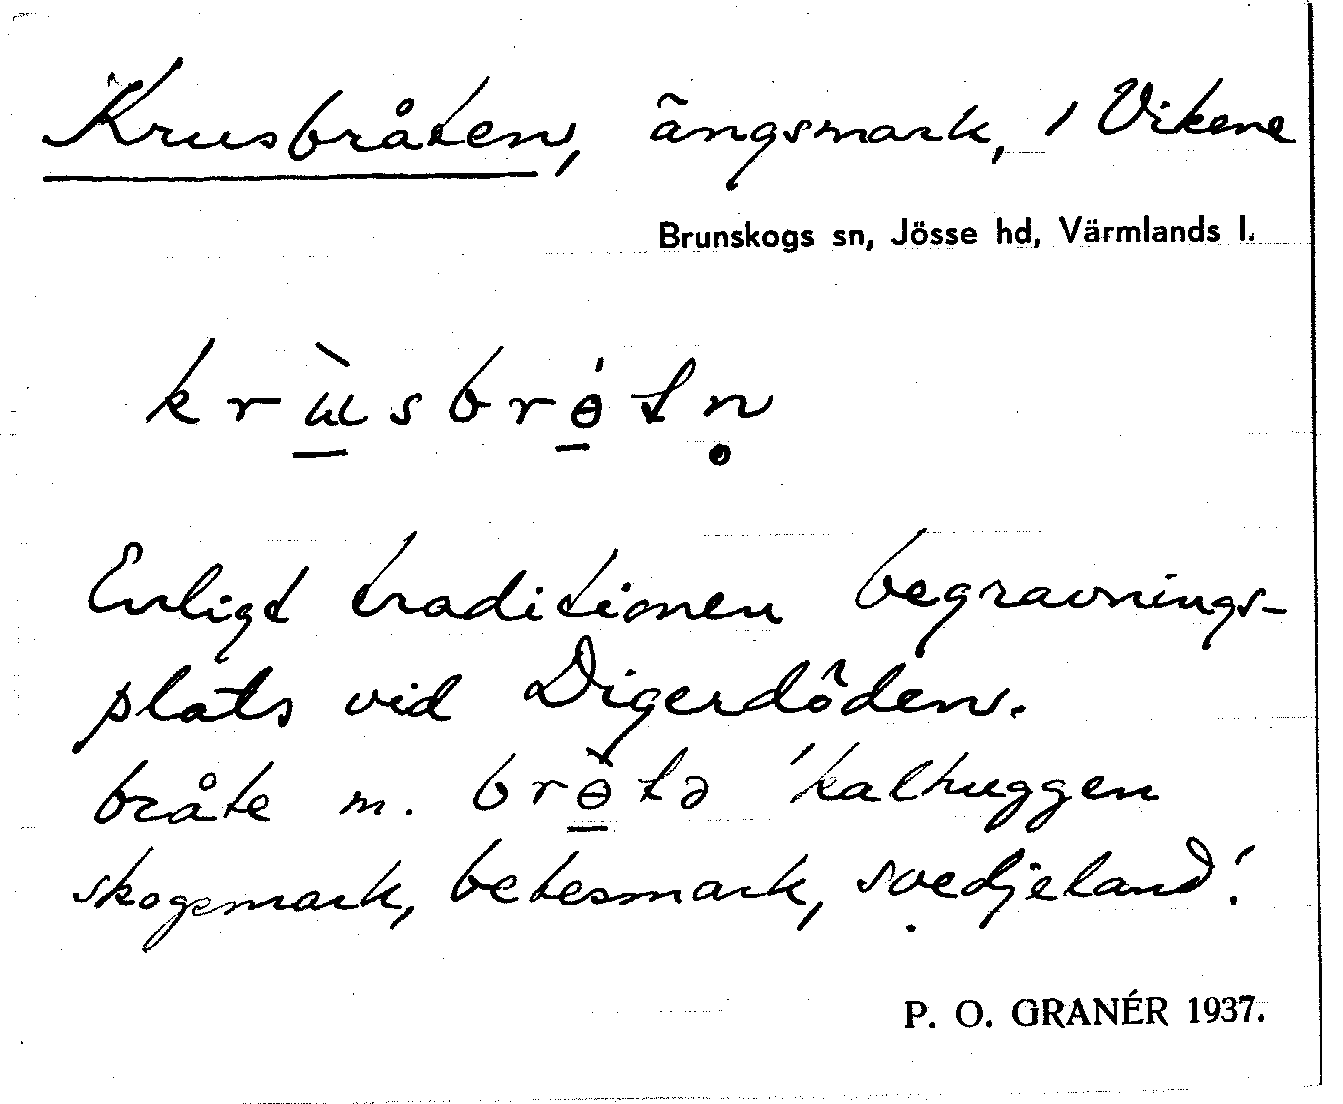 Krusbråten, ängsmark, 1 Vikene
Brunskogs sn, Jösse hd, Värmlands l.
krɯ̀sbrɵ́tn̥
Enligt traditionen begravnings-
plats vid Digerdöden.
bråte m. brɵ̀tə 'kalhuggen
skogsmark, betesmark, svedjeland'.
P. O. GRANÉR 1937.